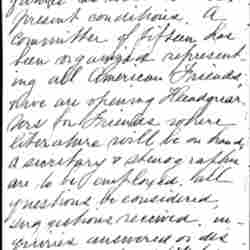 present conditions. A
committee of fifteen has
been organized represent-
ing all American Friends,
have are opening Headquar
ters for Friends where
literature will be on hand,
a secretary & stenographer
are to be employed, all
questions be considered,
suggestions received, in-
quiries answered or dis